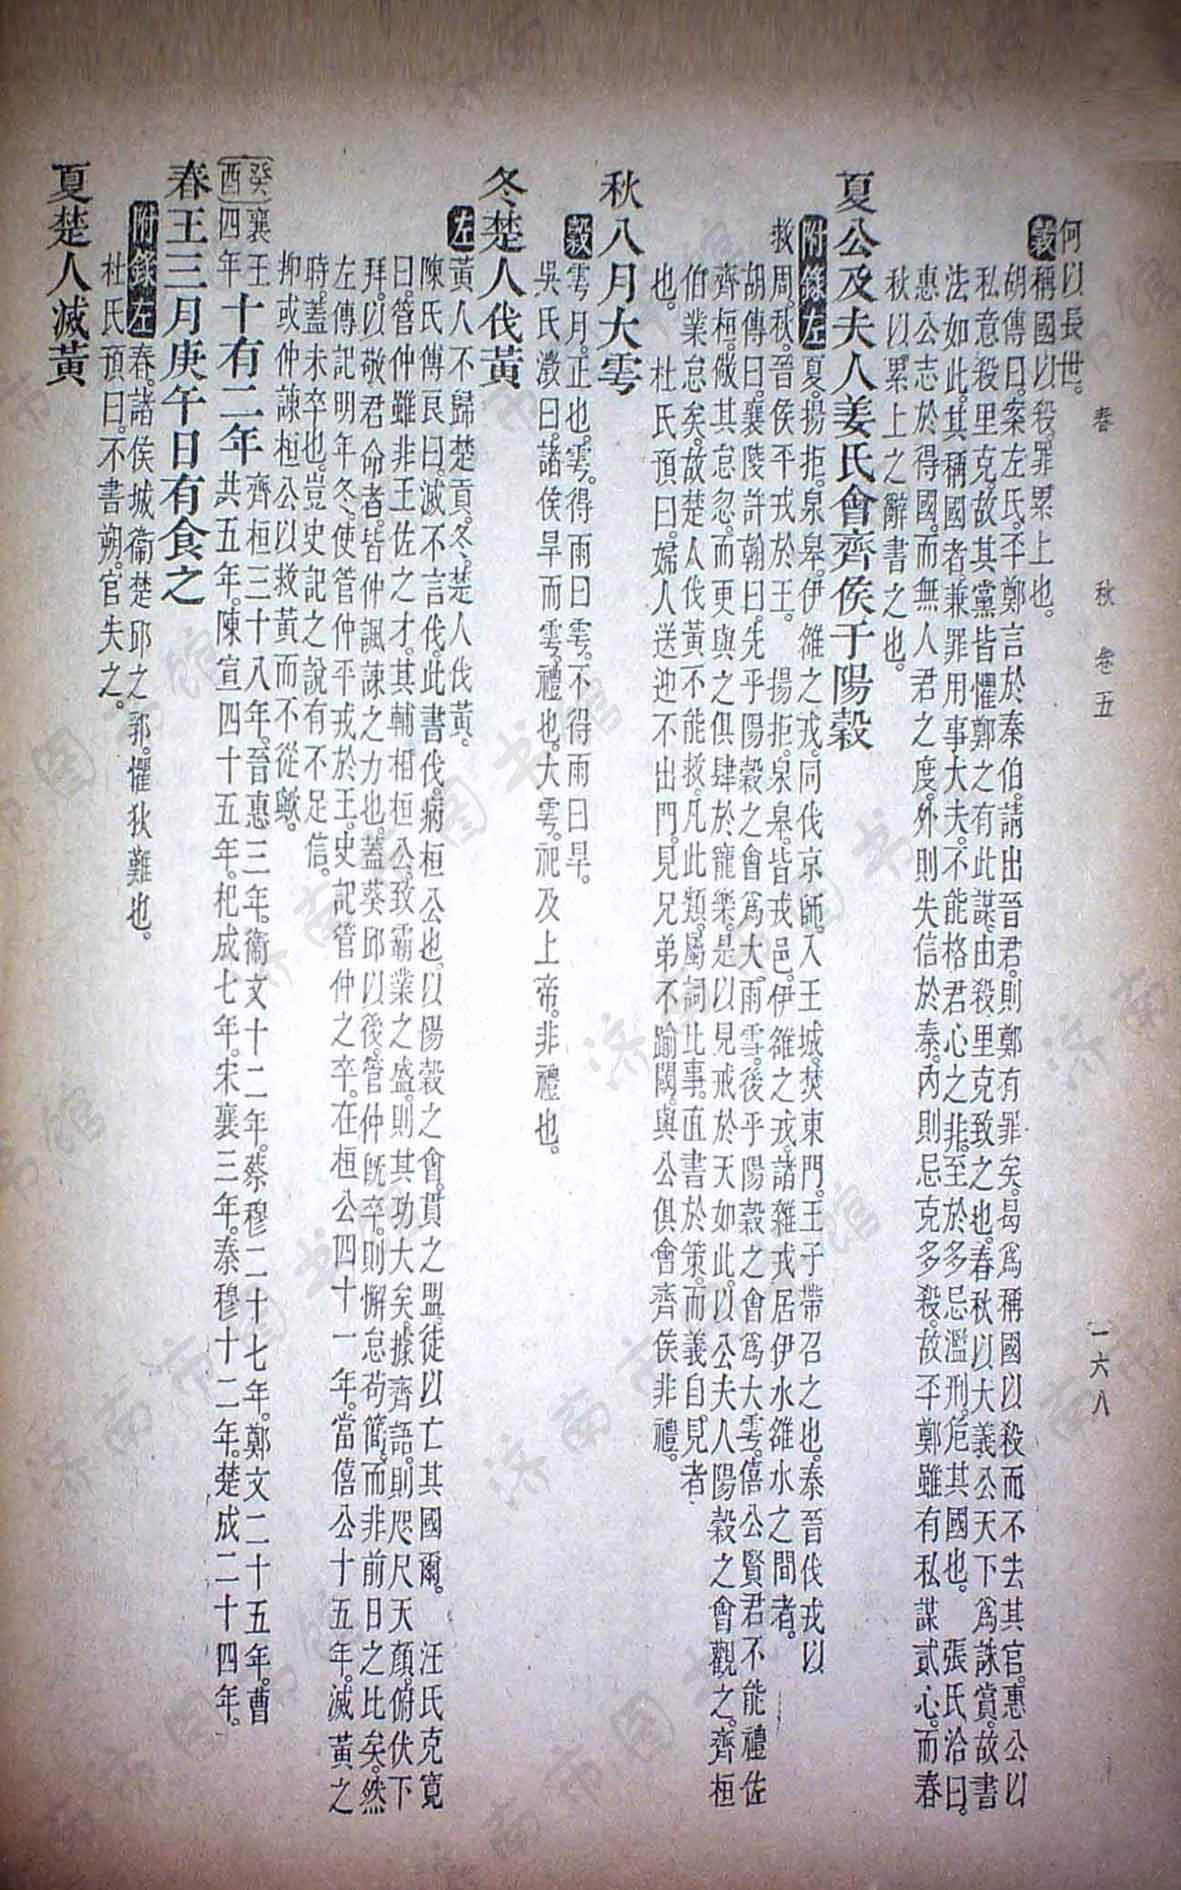 春　秋　卷五　一六八
何以長世。
穀稱國以殺。罪累上也。
胡傳曰。案左氏。丕鄭言於秦伯。請出晉君。則鄭有罪矣。曷爲稱國以殺而不去其官。惠公以
私意殺里克。故其黨皆懼。鄭之有此謀。由殺里克致之也。春秋以大義公天下爲誅賞。故書
法如此。其稱國者。兼罪用事大夫。不能格君心之非。至於多忌濫刑。危其國也。　張氏洽曰。
惠公志於得國。而無人君之度。外則失信於秦。內則忌克多殺。故丕鄭雖有私謀貳心。而春
秋以累上之辭書之也。
夏公及夫人姜氏會齊侯于陽穀
附錄左夏。揚拒。泉皋。伊雒之戎。同伐京師。入王城。焚東門。王子帶召之也。秦晉伐戎以
救周。秋。晉侯平戎於王。　揚拒。泉皋。皆戎邑。伊雒之戎。諸雜戎居伊水雒水之間者。
胡傳曰。襄陵許翰曰。先乎陽穀之會爲大雨雪。後乎陽穀之會爲大雩。僖公賢君不能禮佐
齊桓。儆其怠忽。而更與之俱肆於寵樂。是以見戒於天如此。以公夫人陽穀之會觀之。齊桓
伯業怠矣。故楚人伐黃不能救。凡此類。屬詞比事。直書於策。而義自見者
也。　杜氏預曰。婦人送迎不出門。見兄弟不踰閾。與公俱會齊侯非禮。
秋八月大雩
穀雩月。正也。雩。得雨曰雩。不得雨曰旱。
吳氏澂曰。諸侯旱而雩。禮也。大雩。祀及上帝。非禮也。
冬楚人伐黃
左黃人不歸楚貢。冬。楚人伐黃。
陳氏傅良曰。滅不言伐。此書伐。病桓公也。以陽穀之會。貫之盟。徒以亡其國爾。　汪氏克寬
曰。管仲雖非王佐之才。其輔相桓公。致霸業之盛。則其功大矣。據齊語。則咫尺天顏。俯伏下
拜。以敬君命者。皆仲諷諫之力也。蓋葵邱以後。管仲旣卒。則懈怠苟簡。而非前日之比矣。然
左傳記明年冬。使管仲平戎於王。史記管仲之卒。在桓公四十一年。當僖公十五年。滅黃之
時。蓋未卒也。豈史記之說有不足信。
抑或仲諫桓公以救黃而不從歟。
癸酉襄王四年十有二年齊桓三十八年。晉惠三年。衞文十二年。蔡穆二十七年。鄭文二十五年。曹
共五年。陳宣四十五年。杞成七年。宋襄三年。秦穆十二年。楚成二十四年。
春王三月庚午日有食之
附錄左春。諸侯城衞楚邱之郛。懼狄難也。
杜氏預曰。不書朔。官失之。
夏楚人滅黃